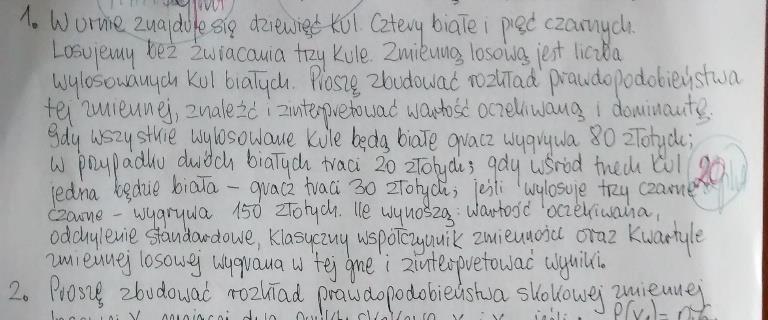 1. W urnie znajduje się dziewięć kul. Cztery białe i pięć czarnych.
Losujemy bez zwracania trzy kule. Zmienną losową jest liczba
wylosowanych kul białych. Proszę zbudować rozkład prawdopodobieństwa
tej zmiennej, znaleźć i zinterpretować wartość oczekiwaną i dominantę.
Gdy wszystkie wylosowane kule będą białe gracz wygrywa 80 złotych;
w przypadku dwóch białych traci 20 złotych; gdy wśród trzech kul
20
jedna będzie biała - gracz traci 30 złotych; jeśli wylosuje trzy czarne
czarne - wygrywa 150 złotych. Ile wynoszą: wartość oczekiwana,
odchylenie standardowe, klasyczny współczynnik zmienności oraz kwartyle
zmiennej losowej wygrana w tej grze i zinterpretować wyniki.
2. Proszę zbudować rozkład prawdopodobieństwa skokowej zmiennej